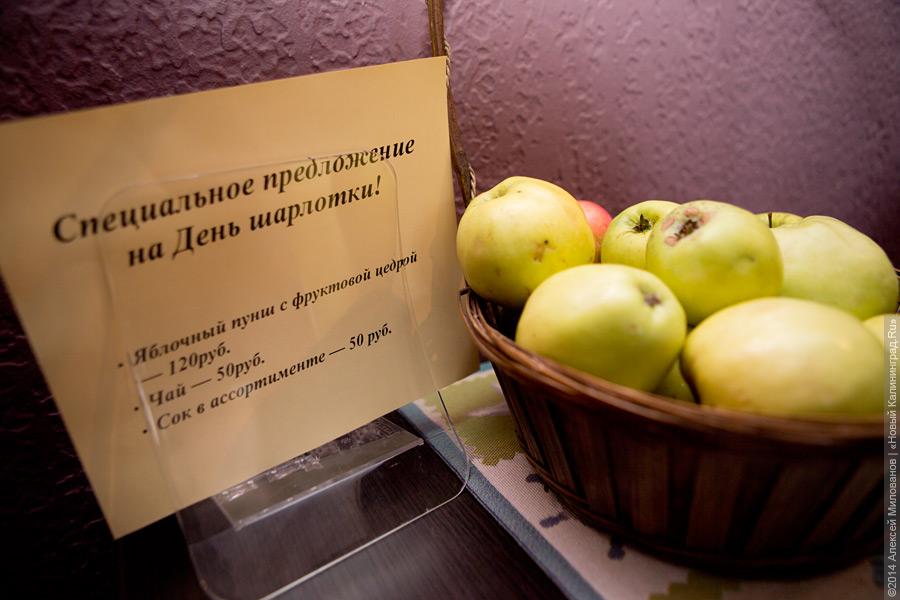 Специальное предложение
на День шарлотки!
· Яблочный пунш с фруктовой цедрой
— 120руб.
· Чай — 50руб.
· Сок в ассортименте — 50 руб.
©2014 Алексей Милованов | «Новый Калининград.Ru»